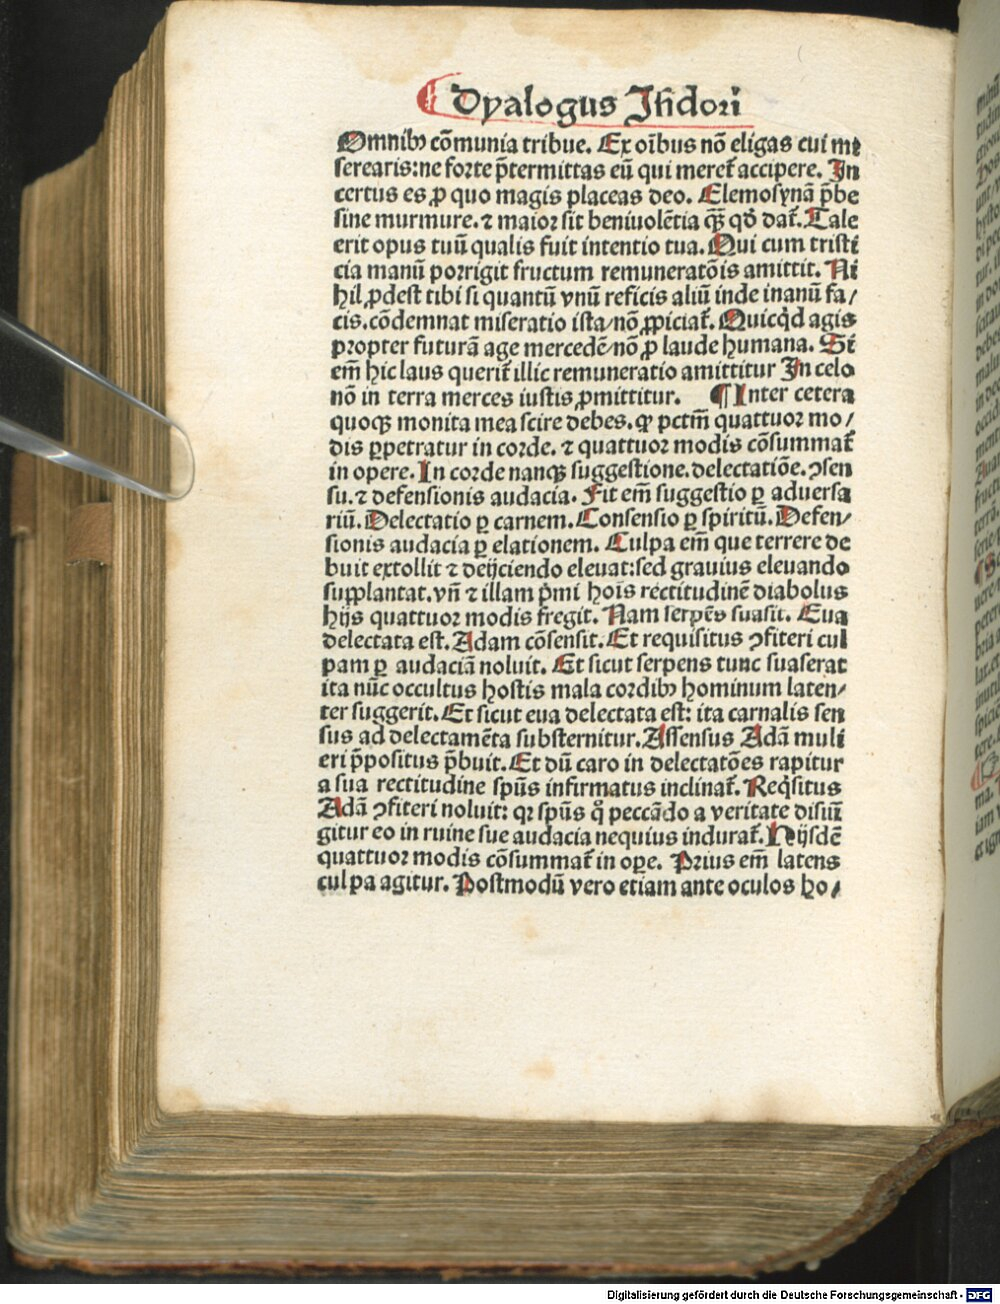 Dyalogus Jsidori
Omnibꝰ cōmunia tribue. Ex oībus nō eligas cui mi
serearis:ne forte p̄termittas eū qui meret᷑ accipere. In
certus es ꝓ quo magis placeas deo. Elemosynā p̄be
sine murmure. ⁊ maior sit beniuolētia qꝫ̄ qđ dat᷑. Tale
erit opus tuū qualis fuit intentio tua. Qui cum tristi
cia manū porrigit fructum remuneratōis amittit. Ni
hil ꝓdest tibi si quantū vnū reficis aliū inde inanū fa/
cis. cōdemnat miseratio ista/nō ꝓpiciat᷑. Quicqͥd agis
propter futurā age mercedē/nō ꝓ laude humana. Si
em̄ hic laus querit᷑ illic remuneratio amittitur In celo
nō in terra merces iustis ꝓmittitur. ¶ Inter cetera
quoqꝫ monita mea scire debes. ꝙ pctm̄ quattuor mo/
dis ꝑpetratur in corde. ⁊ quattuor modis cōsummat᷑
in opere. In corde nanqꝫ suggestione. delectatiōe. ꝯsen
su. ⁊ defensionis audacia. Fit em̄ suggestio ꝑ aduersa
riū. Delectatio ꝑ carnem. Consensio ꝑ spiritū. Defen/
sionis audacia ꝑ elationem. Culpa em̄ que terrere de
buit extollit ⁊ deijciendo eleuat:sed grauius eleuando
supplantat. vn̄ ⁊ illam pͥmi hoīs rectitudinē diabolus
hijs quattuor modis fregit. Nam serpēs suasit. Eua
delectata est. Adam cōsensit. Et requisitus ꝯfiteri cul
pam ꝑ audaciā noluit. Et sicut serpens tunc suaserat
ita nūc occultus hostis mala cordibꝰ hominum laten/
ter suggerit. Et sicut eua delectata est: ita carnalis sen
sus ad delectamēta substernitur. Assensus Adā muli
eri p̄positus p̄buit. Et dū caro in delectatōes rapitur
a sua rectitudine spūs infirmatus inclinat᷑. Reqͥsitus
Adā ꝯfiteri noluit: qꝛ spūs qͥ peccādo a veritate disiū
gitur eo in ruine sue audacia nequius indurat᷑. Hijsdē
quattuor modis cōsummat᷑ in oꝑe. Prius em̄ latens
culpa agitur. Postmodū vero etiam ante oculos ho/
Digitalisierung gefördert durch die Deutsche Forschungsgemeinschaft - DFG